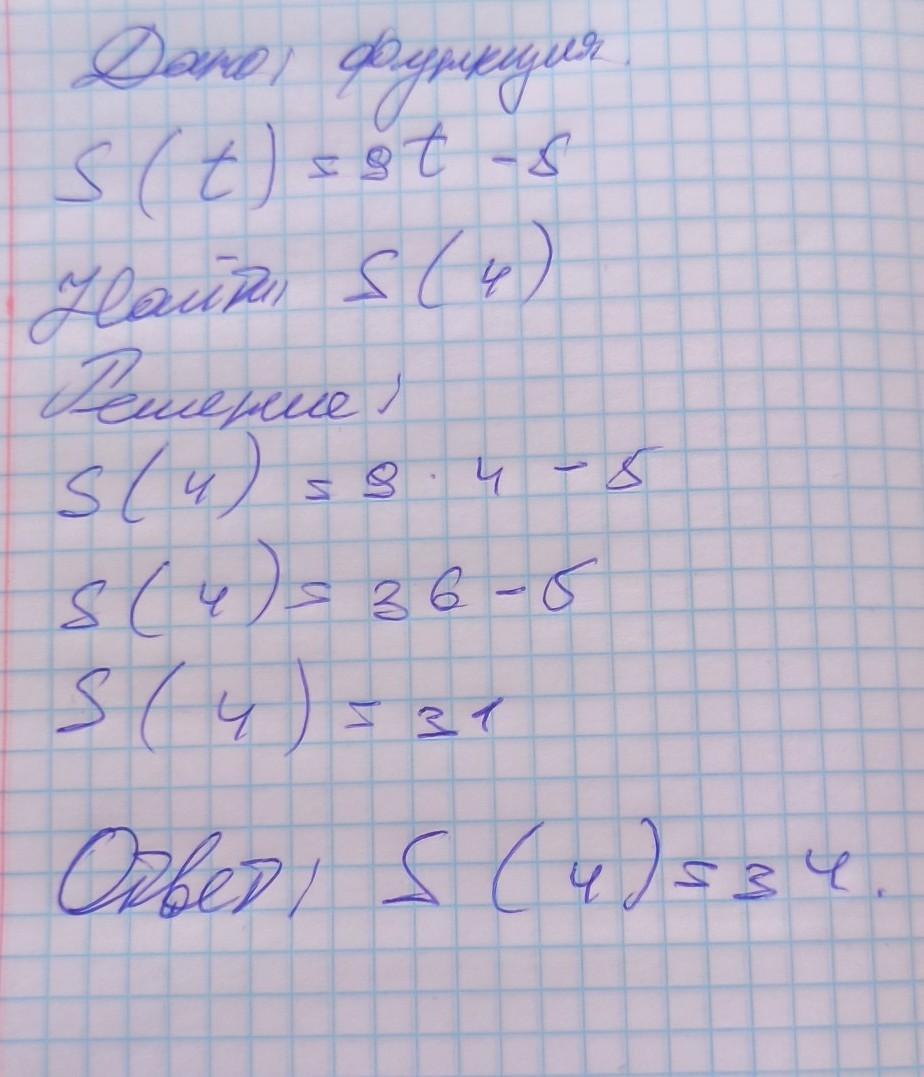 Дано: функция
S(t) = 9t - 5
Найти: S(4)
Решение:
S(4) = 9 · 4 - 5
S(4) = 36 - 5
S(4) = 31
Ответ: S(4) = 34.